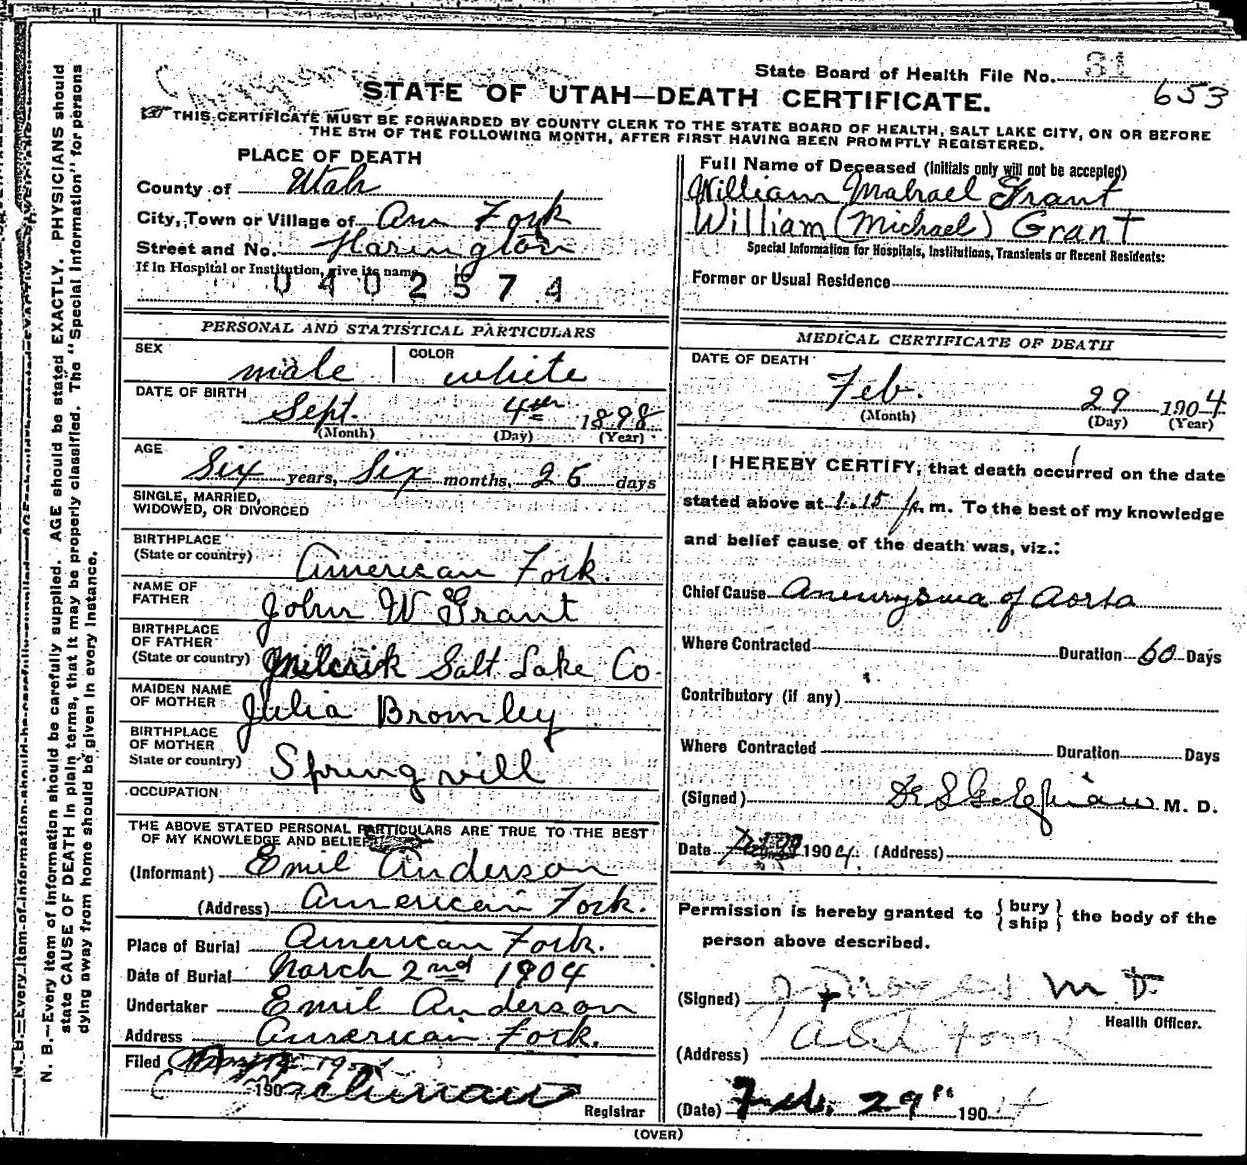 State Board of Health File No. 31
653
STATE OF UTAH—DEATH CERTIFICATE.
THIS CERTIFICATE MUST BE FORWARDED BY COUNTY CLERK TO THE STATE BOARD OF HEALTH, SALT LAKE CITY, ON OR BEFORE
THE 5TH OF THE FOLLOWING MONTH, AFTER FIRST HAVING BEEN PROMPTLY REGISTERED.
PLACE OF DEATH
County of Utah
City, Town or Village of Am Fork
Street and No. Harington
If in Hospital or Institution, give its name
0402574
Full Name of Deceased (Initials only will not be accepted)
William Mahael Grant
William (Michael) Grant
Special Information for Hospitals, Institutions, Transients or Recent Residents:
Former or Usual Residence
PERSONAL AND STATISTICAL PARTICULARS
SEX male COLOR white
DATE OF BIRTH Sept. 4th 1898
(Month) (Day) (Year)
AGE Six years, Six months, 25 days
SINGLE, MARRIED,
WIDOWED, OR DIVORCED
BIRTHPLACE
(State or country) American Fork.
NAME OF
FATHER John W Grant
BIRTHPLACE
OF FATHER
(State or country) Milcrik Salt Lake Co.
MAIDEN NAME
OF MOTHER Julia Bromley
BIRTHPLACE
OF MOTHER
State or country) Springvill
OCCUPATION
THE ABOVE STATED PERSONAL PARTICULARS ARE TRUE TO THE BEST
OF MY KNOWLEDGE AND BELIEF
(Informant) Emil Anderson
(Address) American Fork.
Place of Burial American Fork.
Date of Burial March 2nd 1904
Undertaker Emil Anderson
Address American Fork.
Filed
190
Registrar
MEDICAL CERTIFICATE OF DEATH
DATE OF DEATH
Feb. 29 1904
(Month) (Day) (Year)
I HEREBY CERTIFY, that death occurred on the date
stated above at 1.15 p. m. To the best of my knowledge
and belief cause of the death was, viz.:
Chief Cause Aneurysma of Aorta
Where Contracted Duration 60 Days
Contributory (if any)
Where Contracted Duration Days
(Signed) M. D.
Date 1904. (Address)
Permission is hereby granted to { bury
ship } the body of the
person above described.
(Signed) M D
Health Officer.
(Address)
(Date) Feb. 29" 1904
(OVER)
N. B.—Every item of information should be carefully supplied. AGE should be stated EXACTLY. PHYSICIANS should
state CAUSE OF DEATH in plain terms, that it may be properly classified. The "Special Information" for persons
dying away from home should be given in every instance.